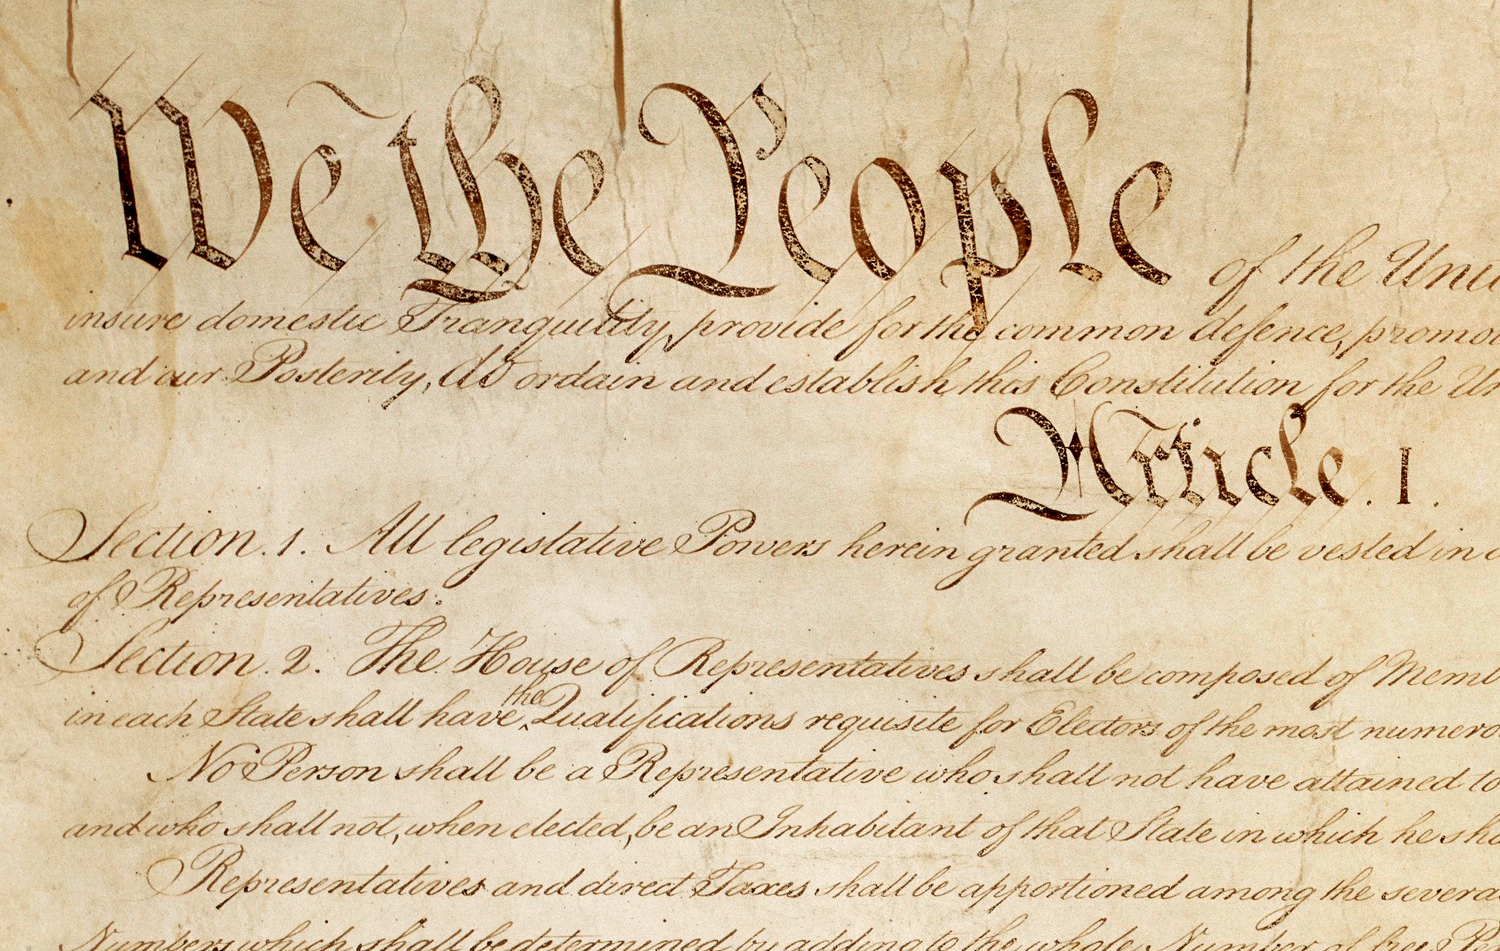 We the People of the Uni
insure domestic Tranquility, provide for the common defence, promo
and our Posterity, do ordain and establish this Constitution for the Un
Article. I.
Section. 1. All legislative Powers herein granted shall be vested in a
of Representatives.
Section. 2. The House of Representatives shall be composed of Memb
the
in each State shall have Qualifications requisite for Electors of the most numero
No Person shall be a Representative who shall not have attained to
and who shall not, when elected, be an Inhabitant of that State in which he sha
Representatives and direct Taxes shall be apportioned among the severa
Numbers, which shall be determined by adding to the whole Number of free Per